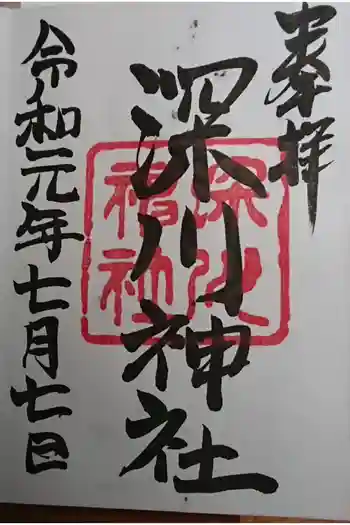 奉拝
深川神社
深川
神社
令和元年七月七日